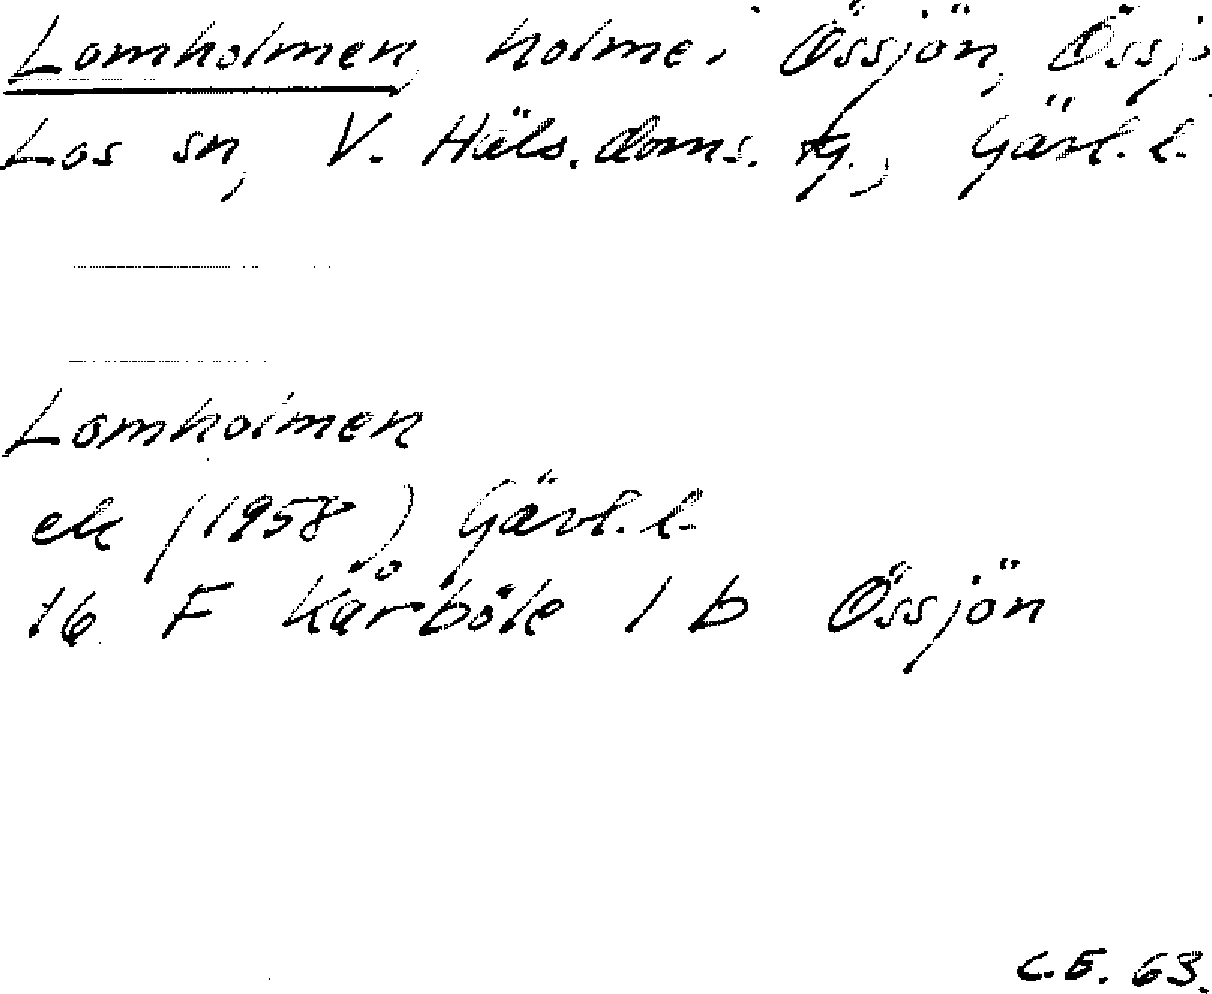 Lomholmen, holme i Össjön, Össj.
Los sn, V. Häls. doms. tg., Gävl. l.
Lomholmen
ek (1958) Gävl. l.
16 F Kårböle 1 b Össjön
C.E. 63.